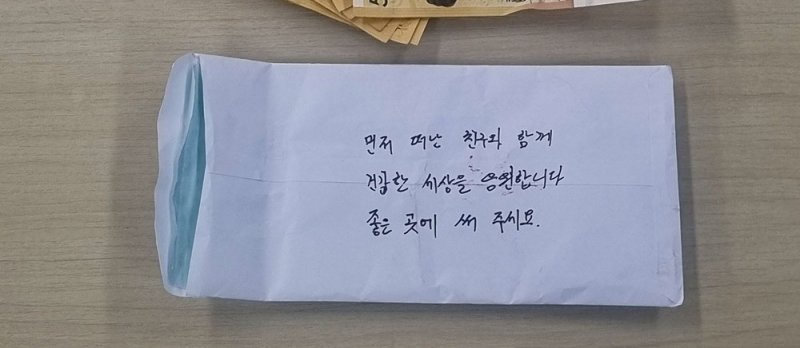 먼저 떠난 친구와 함께
건강한 세상을 응원합니다
좋은 곳에 써 주세요.